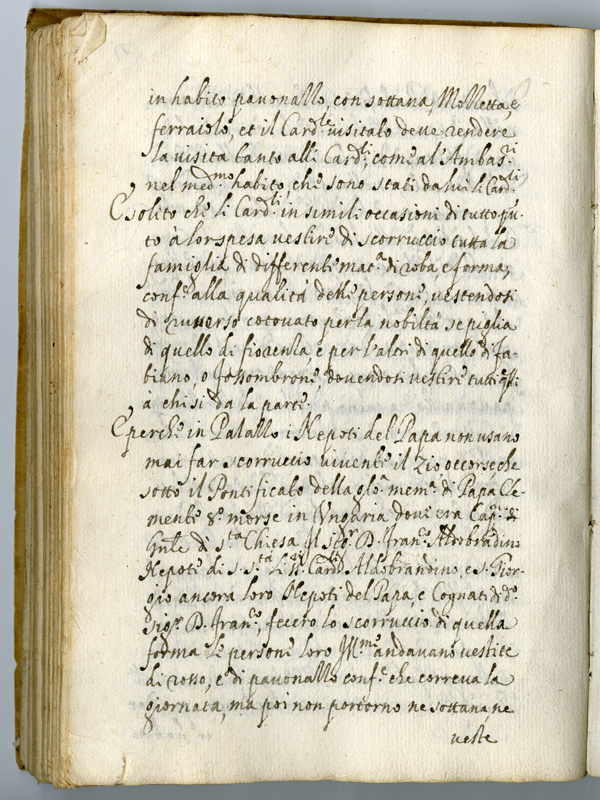 in habito pavonazzo, con sottana, Mozzetta, e
ferraiolo, et il Card.le visitato deve rendere
la visita tanto alli Card.li, come al'Ambas.ri
nel med.mo habito, che sono stati da lui li Card.li
E solito che li Card.li in simili occasioni di tutto pu-
to à lor spesa vestire di scorruccio tutta la
famiglia di differente mat.a di roba, e forma,
conf.e alla qualità delle persone, vestendosi
di cotovato per la nobiltà se piglia
di quello di fiorenza, e per l'altri di quello di fa-
briano, o fossombrone, dovendosi vestire tutti q.lli
à chi si da la parte.
E perche in Palazzo i Nepoti del Papa non usano
mai far scorruccio vivente il Zio occorse che
sotto il Pontificato della glo.a mem.a di Papa Cle-
mente 8.o morse in Ungaria dove era Cap.o di
Gn'le di s.ta Chiesa il sig.r D. Fran.co Aldobrandino
Nepote di s. s.tà li ss.ri Card.li Aldobrandino, e s. Gior-
gio ancora loro Nepoti del Papa, e Cognati di d.o
sig.r D. Fran.co, fecero lo scorruccio di quella
forma le persone loro Ill.me andavano vestite
di rosso, e di pavonazzo conf.e che correva la
giornata, ma poi non portorno ne sottana, ne
veste